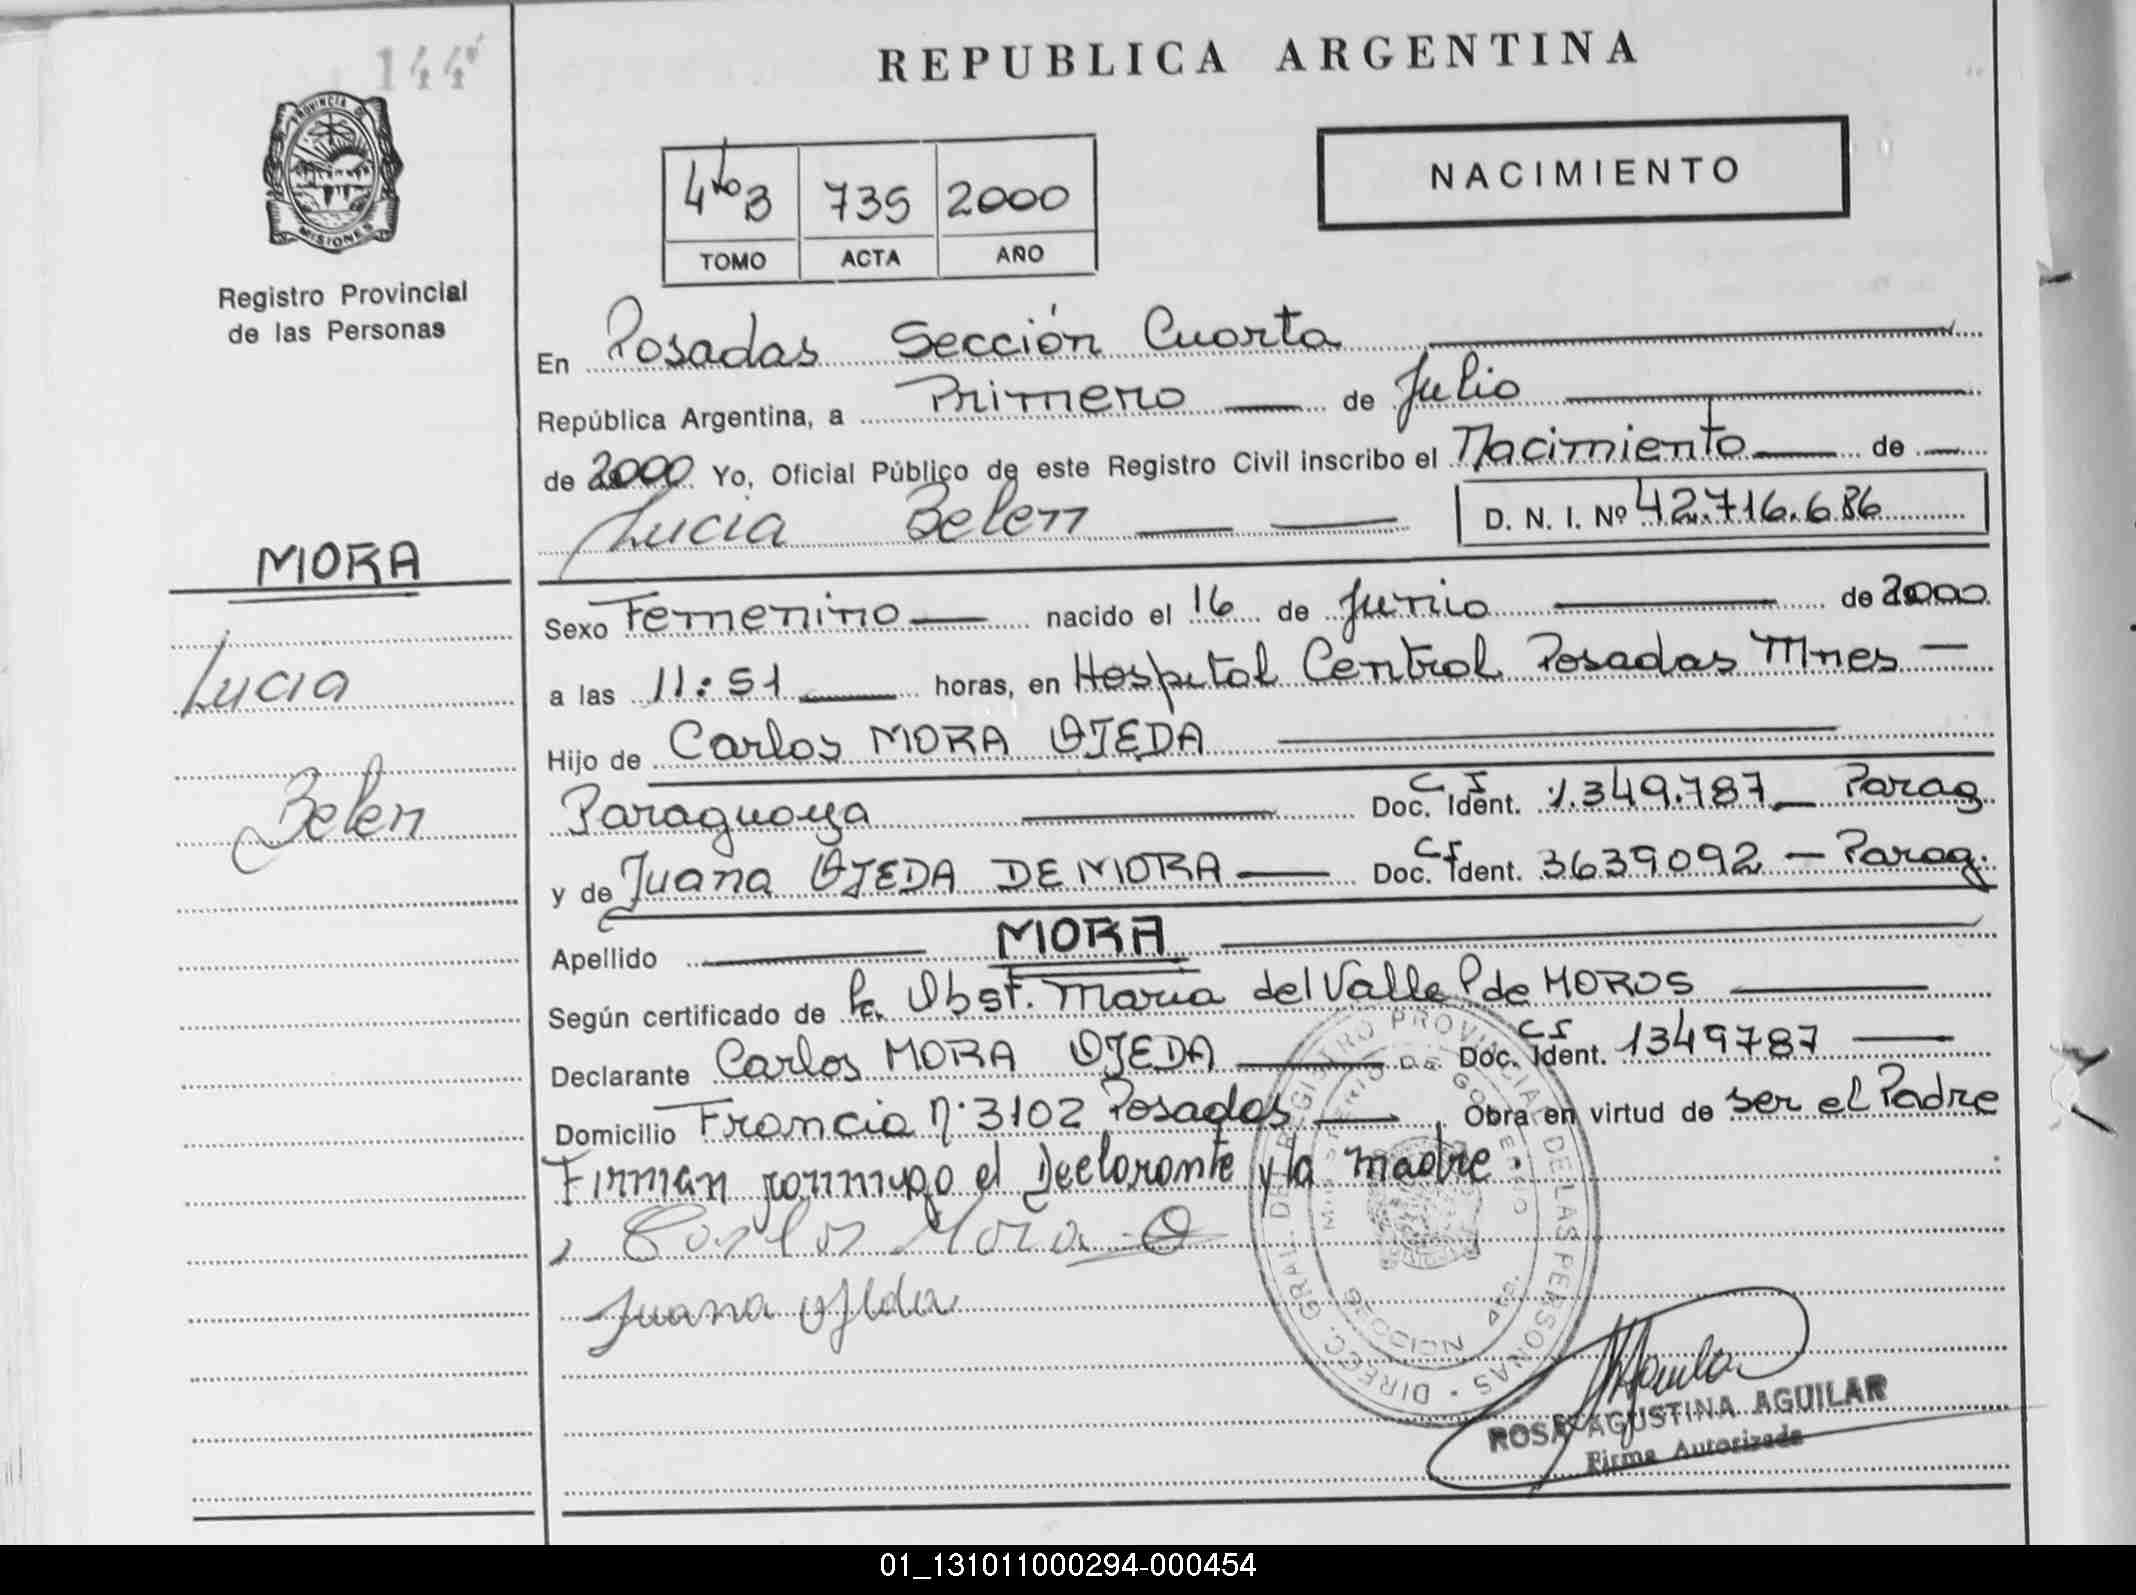 144
REPUBLICA ARGENTINA
PROVINCIA DE
MISIONES
Registro Provincial
de las Personas
4to B 735 2000
TOMO ACTA AÑO
NACIMIENTO
En Posadas Sección Cuarta
República Argentina, a Primero de Julio
de 2000 Yo, Oficial Público de este Registro Civil inscribo el Nacimiento de
Lucia Belen D. N. I. Nº 42.716.686
MORA
Lucia
Belen
Sexo Femenino nacido el 16 de Junio de 2000
a las 11:51 horas, en Hospital Central Posadas Mnes
Hijo de Carlos MORA OJEDA
Paraguaya Doc. Ident. C I 1.349.787 Parag
y de Juana OJEDA DE MORA Doc. Ident. C I 3639092 - Parag.
Apellido MORA
Según certificado de la Obst. Maria del Valle P de MOROS
Declarante Carlos MORA OJEDA Doc. Ident. C I 1349787
Domicilio Francia Nº 3102 Posadas Obra en virtud de ser el Padre
Firman conmigo el Declarante y la madre.
Carlos Mora O
Juana Ojeda
DIRECC. GRAL. DE REGISTRO PROVINCIAL DE LAS PERSONAS
MINISTERIO DE GOBIERNO
ROSA AGUSTINA AGUILAR
Firma Autorizada
01_131011000294-000454